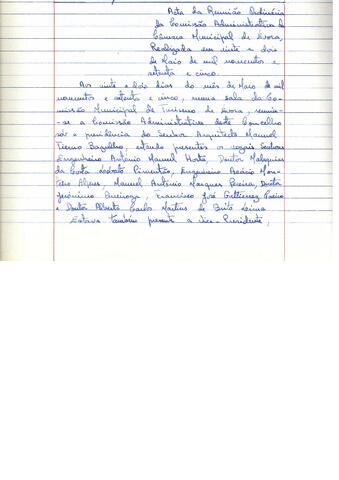 Acta da Reunião Ordinária
da Comissão Administrativa da
Câmara Municipal de Évora,
Realizada em vinte e dois
de Maio de mil novecentos e
setenta e cinco.
Aos vinte e dois dias do mês de Maio de mil
novecentos e setenta e cinco, numa sala da Co-
missão Municipal de Turismo de Évora, reuniu-
-se a Comissão Administrativa deste Concelho
sob a presidência do Senhor Arquitecto Manuel
estando presentes os vogais Senhores
Engenheiro António Manuel Doutor Malaquias
da Costa Pimentão, Engenheiro Acácio Mon-
teiro Alpes, Manuel António Marques Pereira, Doutor
Jerónimo Francisco José
e Doutor Alberto Carlos Martins de Brito Lima
Estava também presente a vice-Presidente,